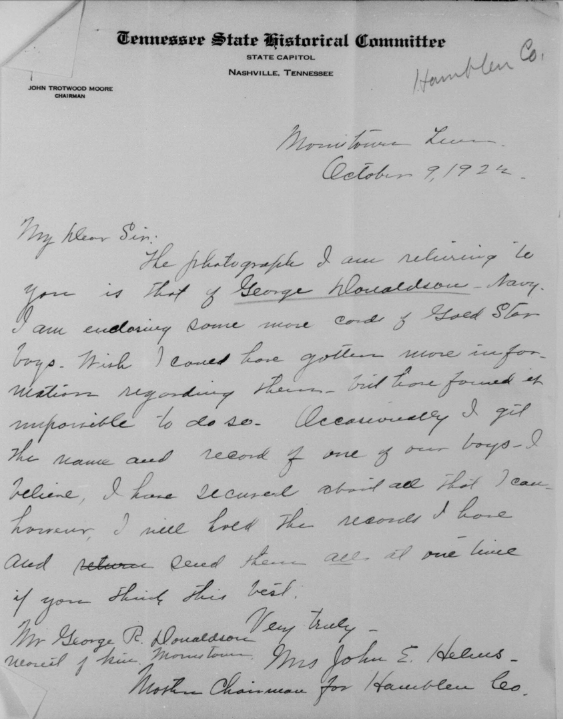 Tennessee State Historical Committee
STATE CAPITOL
NASHVILLE, TENNESSEE
Hamblen Co.
JOHN TROTWOOD MOORE
CHAIRMAN
Morristown Tenn.
October 9, 1922.
My dear Sir:
The photograph I am returning to
you is that of George Donaldson - Navy.
I am enclosing some more cards of Gold Star
boys. Wish I could have gotten more infor-
mation regarding them - but have found it
impossible to do so - Occasionally I get
the name and record of one of our boys - I
believe, I have secured about all that I can -
however, I will hold the records I have
and return send them all at one time
if you think this best.
Very truly -
Mr George R. Donaldson
nearest of kin, Morristown,
Mrs John E. Helms -
Chairman for Hamblen Co.